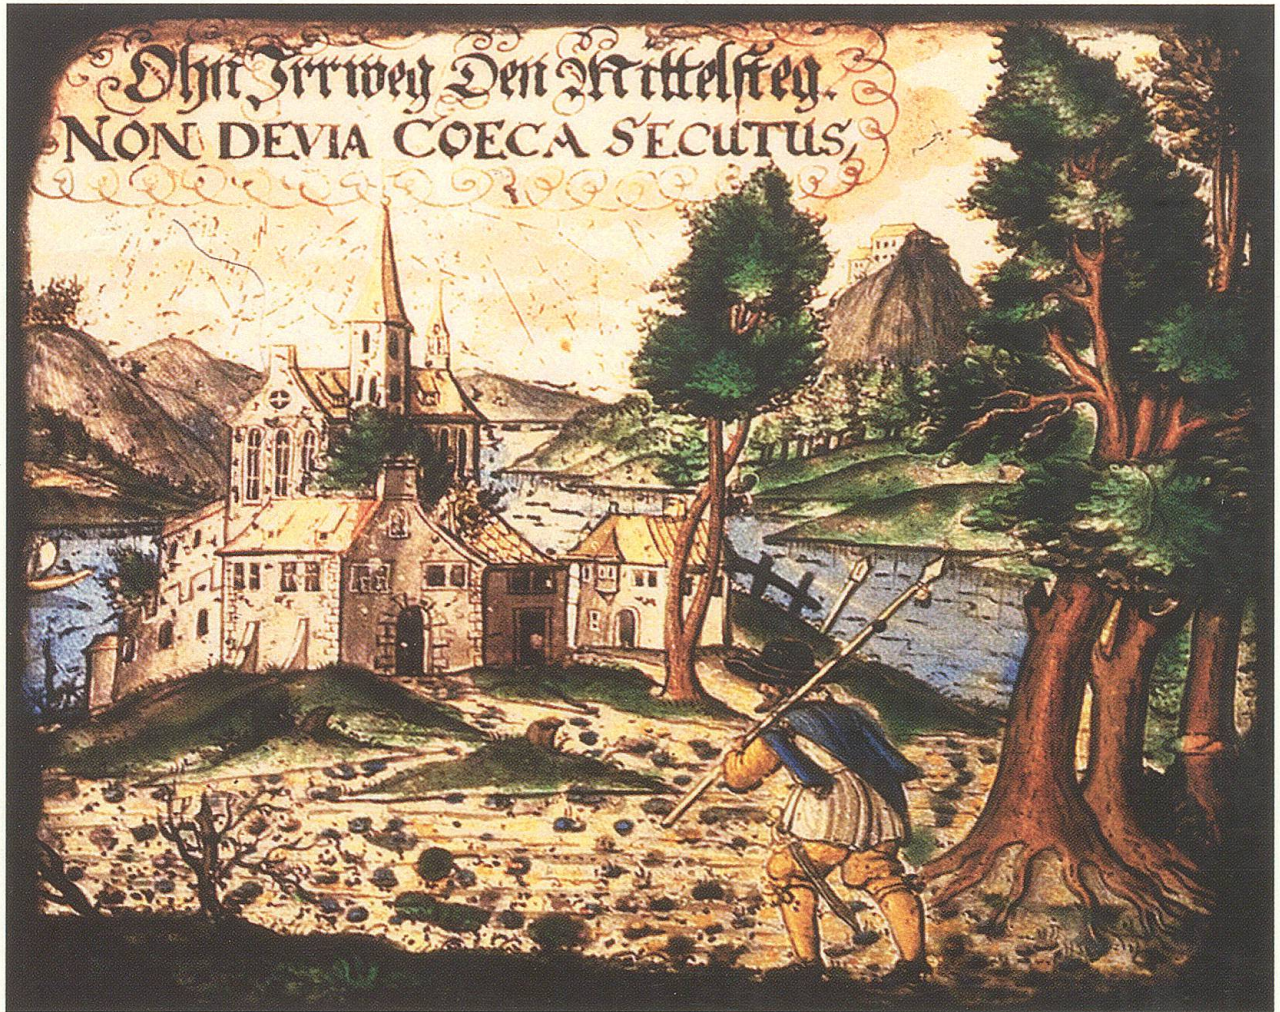 Ohn Irrweg Den Mittelsteg.
NON DEVIA COECA SECUTUS,